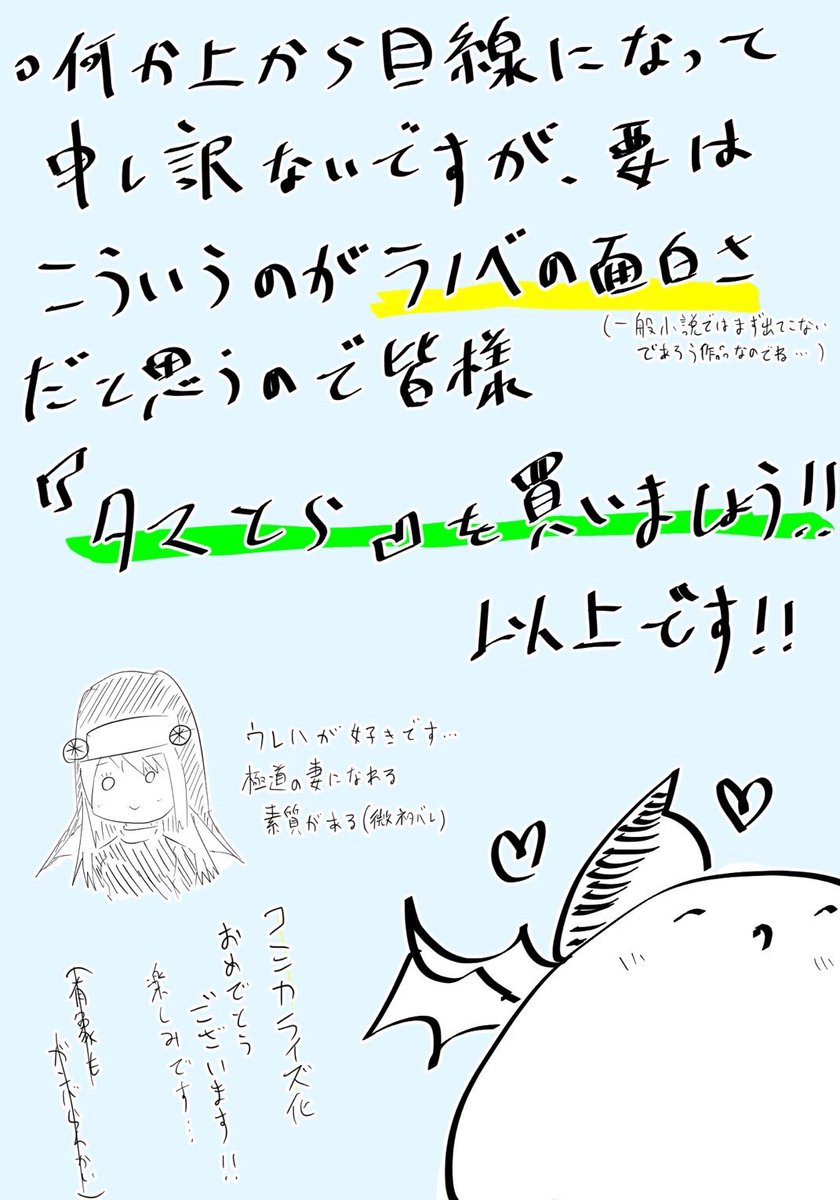 ○何か上から目線になって
申し訳ないですが、要は
こういうのがラノベの面白さ
(一般小説ではまず出てこない
であろう作品なのでね…)
だと思うので皆様
『タマとら』を買いましょう!!
以上です!!
ウレハが好きです…
極道の妻になれる
素質がある(微ネタバレ)
コミカライズ化
おめでとう
ございます!!
楽しみです…